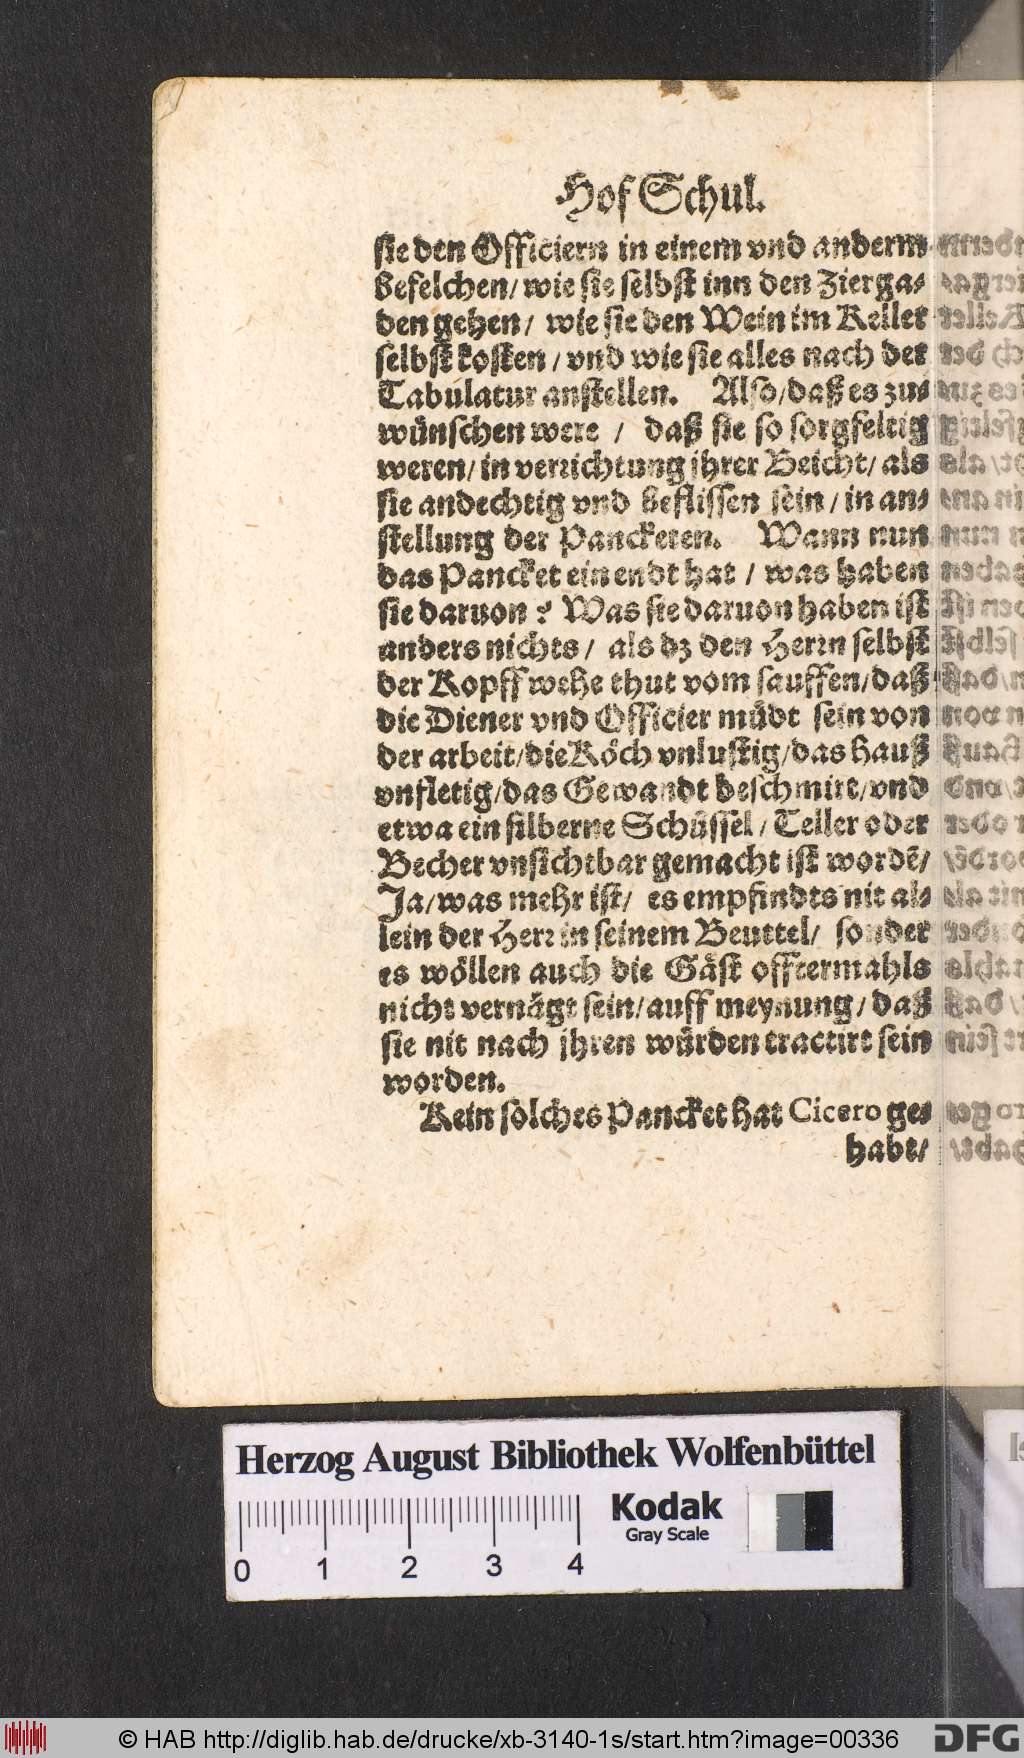 Hof Schul.
sie den Officiern in einem vnd anderm
befelchen/ wie sie selbst inn den Zierga-
den gehen/ wie sie den Wein im Keller
selbst kosten/ vnd wie sie alles nach der
Tabulatur anstellen. Also/ daß es zu-
wünschen were / daß sie so sorgfeltig
weren/ in verrichtung jhrer Beicht/ als
sie andechtig vnd beflissen sein/ in an-
stellung der Pancketen. Wann nun
das Pancket ein endt hat / was haben
sie daruon? Was sie daruon haben ist
anders nichts/ als dz den Herrn selbst
der Kopff wehe thut vom sauffen/ daß
die Diener vnd Officier müdt sein von
der arbeit/ die Köch vnlustig/ das hauß
vnfletig/ das Gewandt beschmirt/ vnd
etwa ein silberne Schüssel/ Teller oder
Becher vnsichtbar gemacht ist wordē/
Ja/ was mehr ist/ es empfindts nit al-
lein der Herr in seinem Beuttel/ sonder
es wöllen auch die Gäst offtermahls
nicht vernügt sein/ auff meynung/ daß
sie nit nach jhren würden tractirt sein
worden.
Kein solches Pancket hat Cicero ge-
habt/
Herzog August Bibliothek Wolfenbüttel
Kodak
Gray Scale
0 1 2 3 4
© HAB http://diglib.hab.de/drucke/xb-3140-1s/start.htm?image=00336
DFG